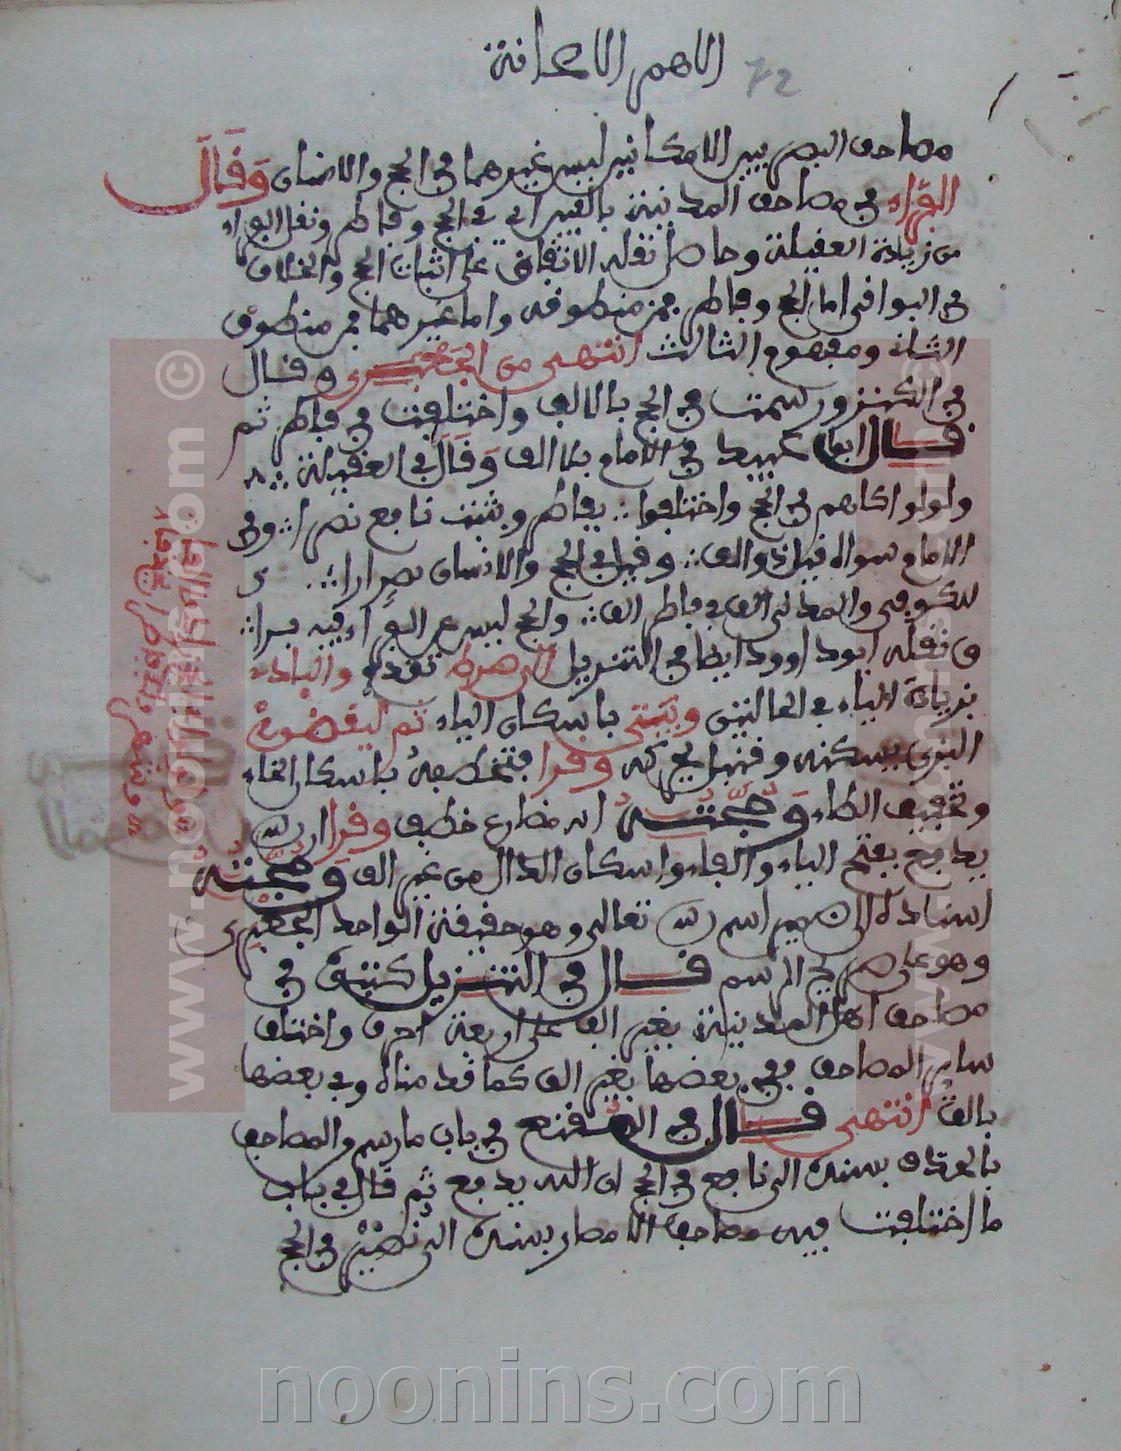 اللاهم الاعانة
72
مصاحف البصريين الامكانين ليس غيرهما في الحج والانسان وقال
الفراء في مصاحف المدنية بالفين اي في الحج وفاطر ونقل الفراء
من زيادة العقيلة وحاصل نقله الاتفاق على اثبات الحج والخلاف
في البواقي اما الحج وفاطر فمن منطوقه واما غيرهما فمن منطوق
الثاني ومفهوم الثالث انتهى من الجعبري وقال
في الكنز ورسمت في الحج بالالف واختلفت في فاطر ثم
قال ابو عبيد في الامام بلا الف وقال في العقيلة
ولؤلؤا كلهم في الحج واختلفوا بفاطر وبثبت نافع نصرا وفي
الامام سواه قيل ذو الف وقيل في الحج والانسان بصر ارا ى
للكوفي والمدني الف في فاطر الف والحج ليس عن الفراء فيه مرا
ونقله ابوداوود ايضا في التنزيل الى صراط تقدم والباد
بزيادة الياء في الحالتين وبيتي باسكان الياء ثم ليقضوا
البزي يسكنه وقنبل يحركه وقرا فتخطفه باسكان الخاء
وتخفيف الطاء وحجته انه مضارع خطف وقرا ان الله
يدفع بفتح الياء والفاء واسكان الدال من غير الف وحجته
اسناده الى ضمير اسم الله تعالى وهو حقيقة الواحد الجعبري
وهو على صريح الرسم قال في التنزيل كتبت في
مصاحف اهل المدينة بغير الف على اربعة احرف واختلف
ساير المصاحف ففي بعضها بغير الف كما قدمناه وفي بعضها
بالف انتهى قال في المقنع في باب ما رسم في المصاحف
بالحذف بسنده الى نافع في الحج ان الله يدفع ثم قال في باب
ما اختلفت فيه مصاحف الامصار بسنده الى نصير في الحج
www.noonins.com ©
www.noonins.com ©
noonins.com